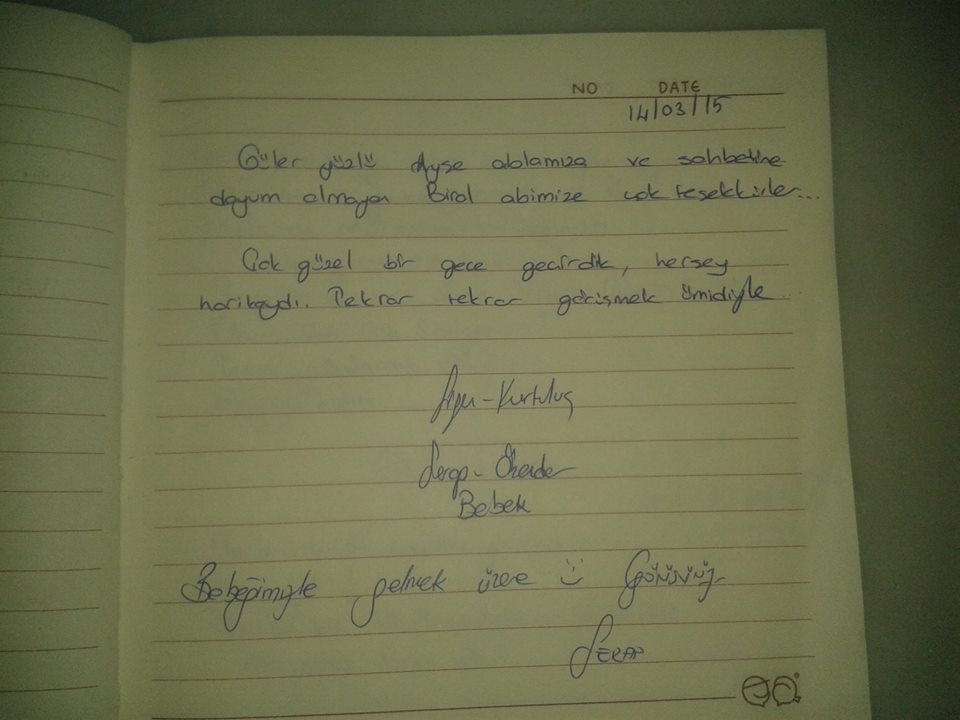 NO DATE
14/03/15
Güler yüzlü Ayşe ablamıza ve sohbetine
doyum olmayan Birol abimize çok teşekkürler...
Çok güzel bir gece geçirdik, herşey
harikaydı. Tekrar tekrar görüşmek ümidiyle
- Kurtuluş
Serap -
Bebek
Bebeğimiyle gelmek üzere :) Görüşürüz
SERAP